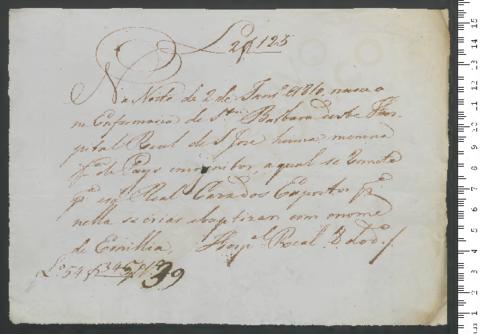 L 2 f 125
Na Noite de 2 de Janrº de 1810, nasceo
na Enfermaria de Stª Barbara deste Hos-
pital Real de S. Jose huma menina
fª de Pays incognitos, a qual se remete
pª esta Real Caza dos Expostos pª
nella se criar e baptizar com o nome
de Emillia. Hospal Real
Lº 54 f 345
39